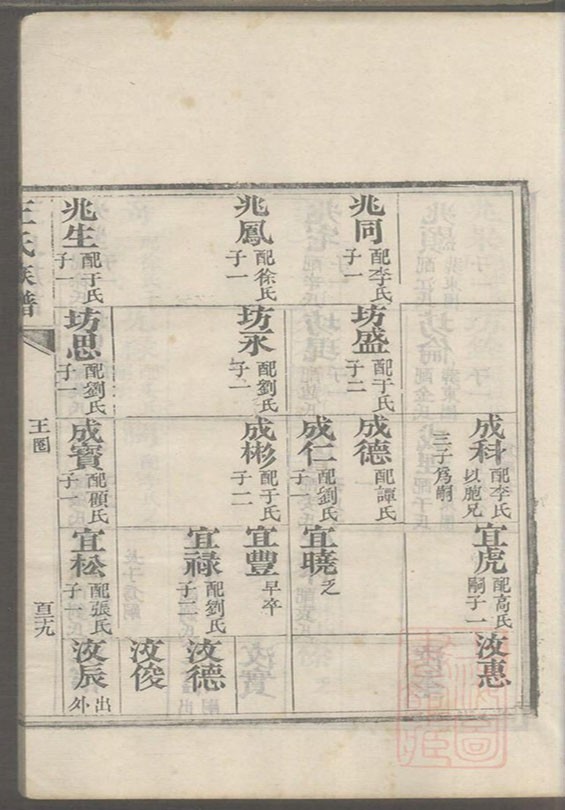 成科 配李氏 以胞兄三子爲嗣
宜虎 配高氏 嗣子一
汝惠
兆同 配李氏 子一
坊盛 配于氏 子二
成德 配譚氏
成仁 配劉氏 子一
宜曉 乏
兆鳳 配徐氏 子一
坊永 配劉氏 子一
成彬 配于氏 子二
宜豐 早卒
宜禄 配劉氏 子二
汝德
汝俊
兆生 配于氏 子一
坊思 配劉氏 子一
成寶 配顧氏 子一
宜松 配張氏 子一
汝辰 出外
王氏族譜